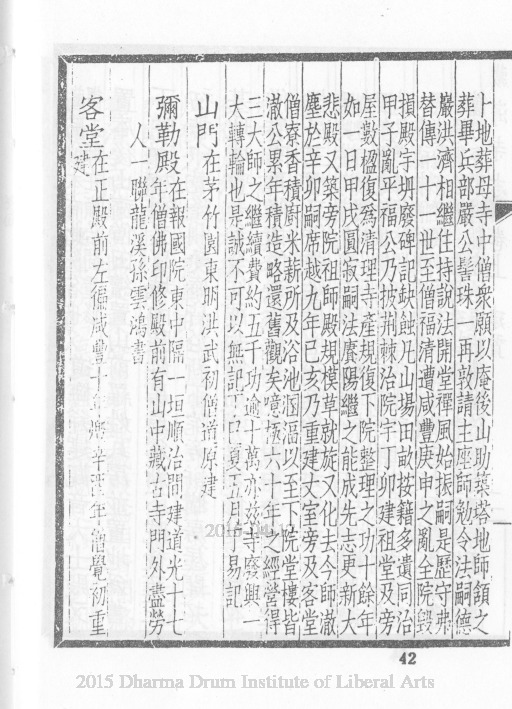 卜地葬母寺中僧衆願以庵後山助築塔地師頷之
葬畢兵部嚴公髻珠一再敦請主座師勉令法嗣德
巖洪濟相繼住持說法開堂禪風怡振嗣是歷守弗
替傳一十一世至僧福清遭咸豐庚申之亂全院毀
損殿宇坍廢碑記缺蝕凡山場田畝按籍多遺同治
甲子亂平福公乃披荆棘治院宇丁卯建祖堂及旁
屋數楹復爲清理寺產規復下院整理之功十餘年
如一日甲戌圓寂嗣法賡陽繼之能成先志更新大
悲殿又築旁院祖師殿規模草就旋又化去今師澈
塵於辛卯嗣席越九年已亥乃重建大室旁及客堂
僧寮香積厨米薪所及浴池溷湢以至下院堂樓皆
澈公累年積造略還舊觀矣噫極六十年之經營得
三大師之繼續費約五千功逾十萬亦茲寺廢興一
大轉輪也是誠不可以無記丁巳夏五月丁易記
山門在茅竹園東明洪武初僧道原建
彌勒殿在報國院東中隔一垣順治間建道光十七
年僧佛印修殿前有山中藏古寺門外盡勞
人一聯龍溪孫雲鴻書
客堂在正殿前左偏咸豐十年燬辛酉年僧覺初重
建
42
2015 Dharma Drum Institute of Liberal Arts